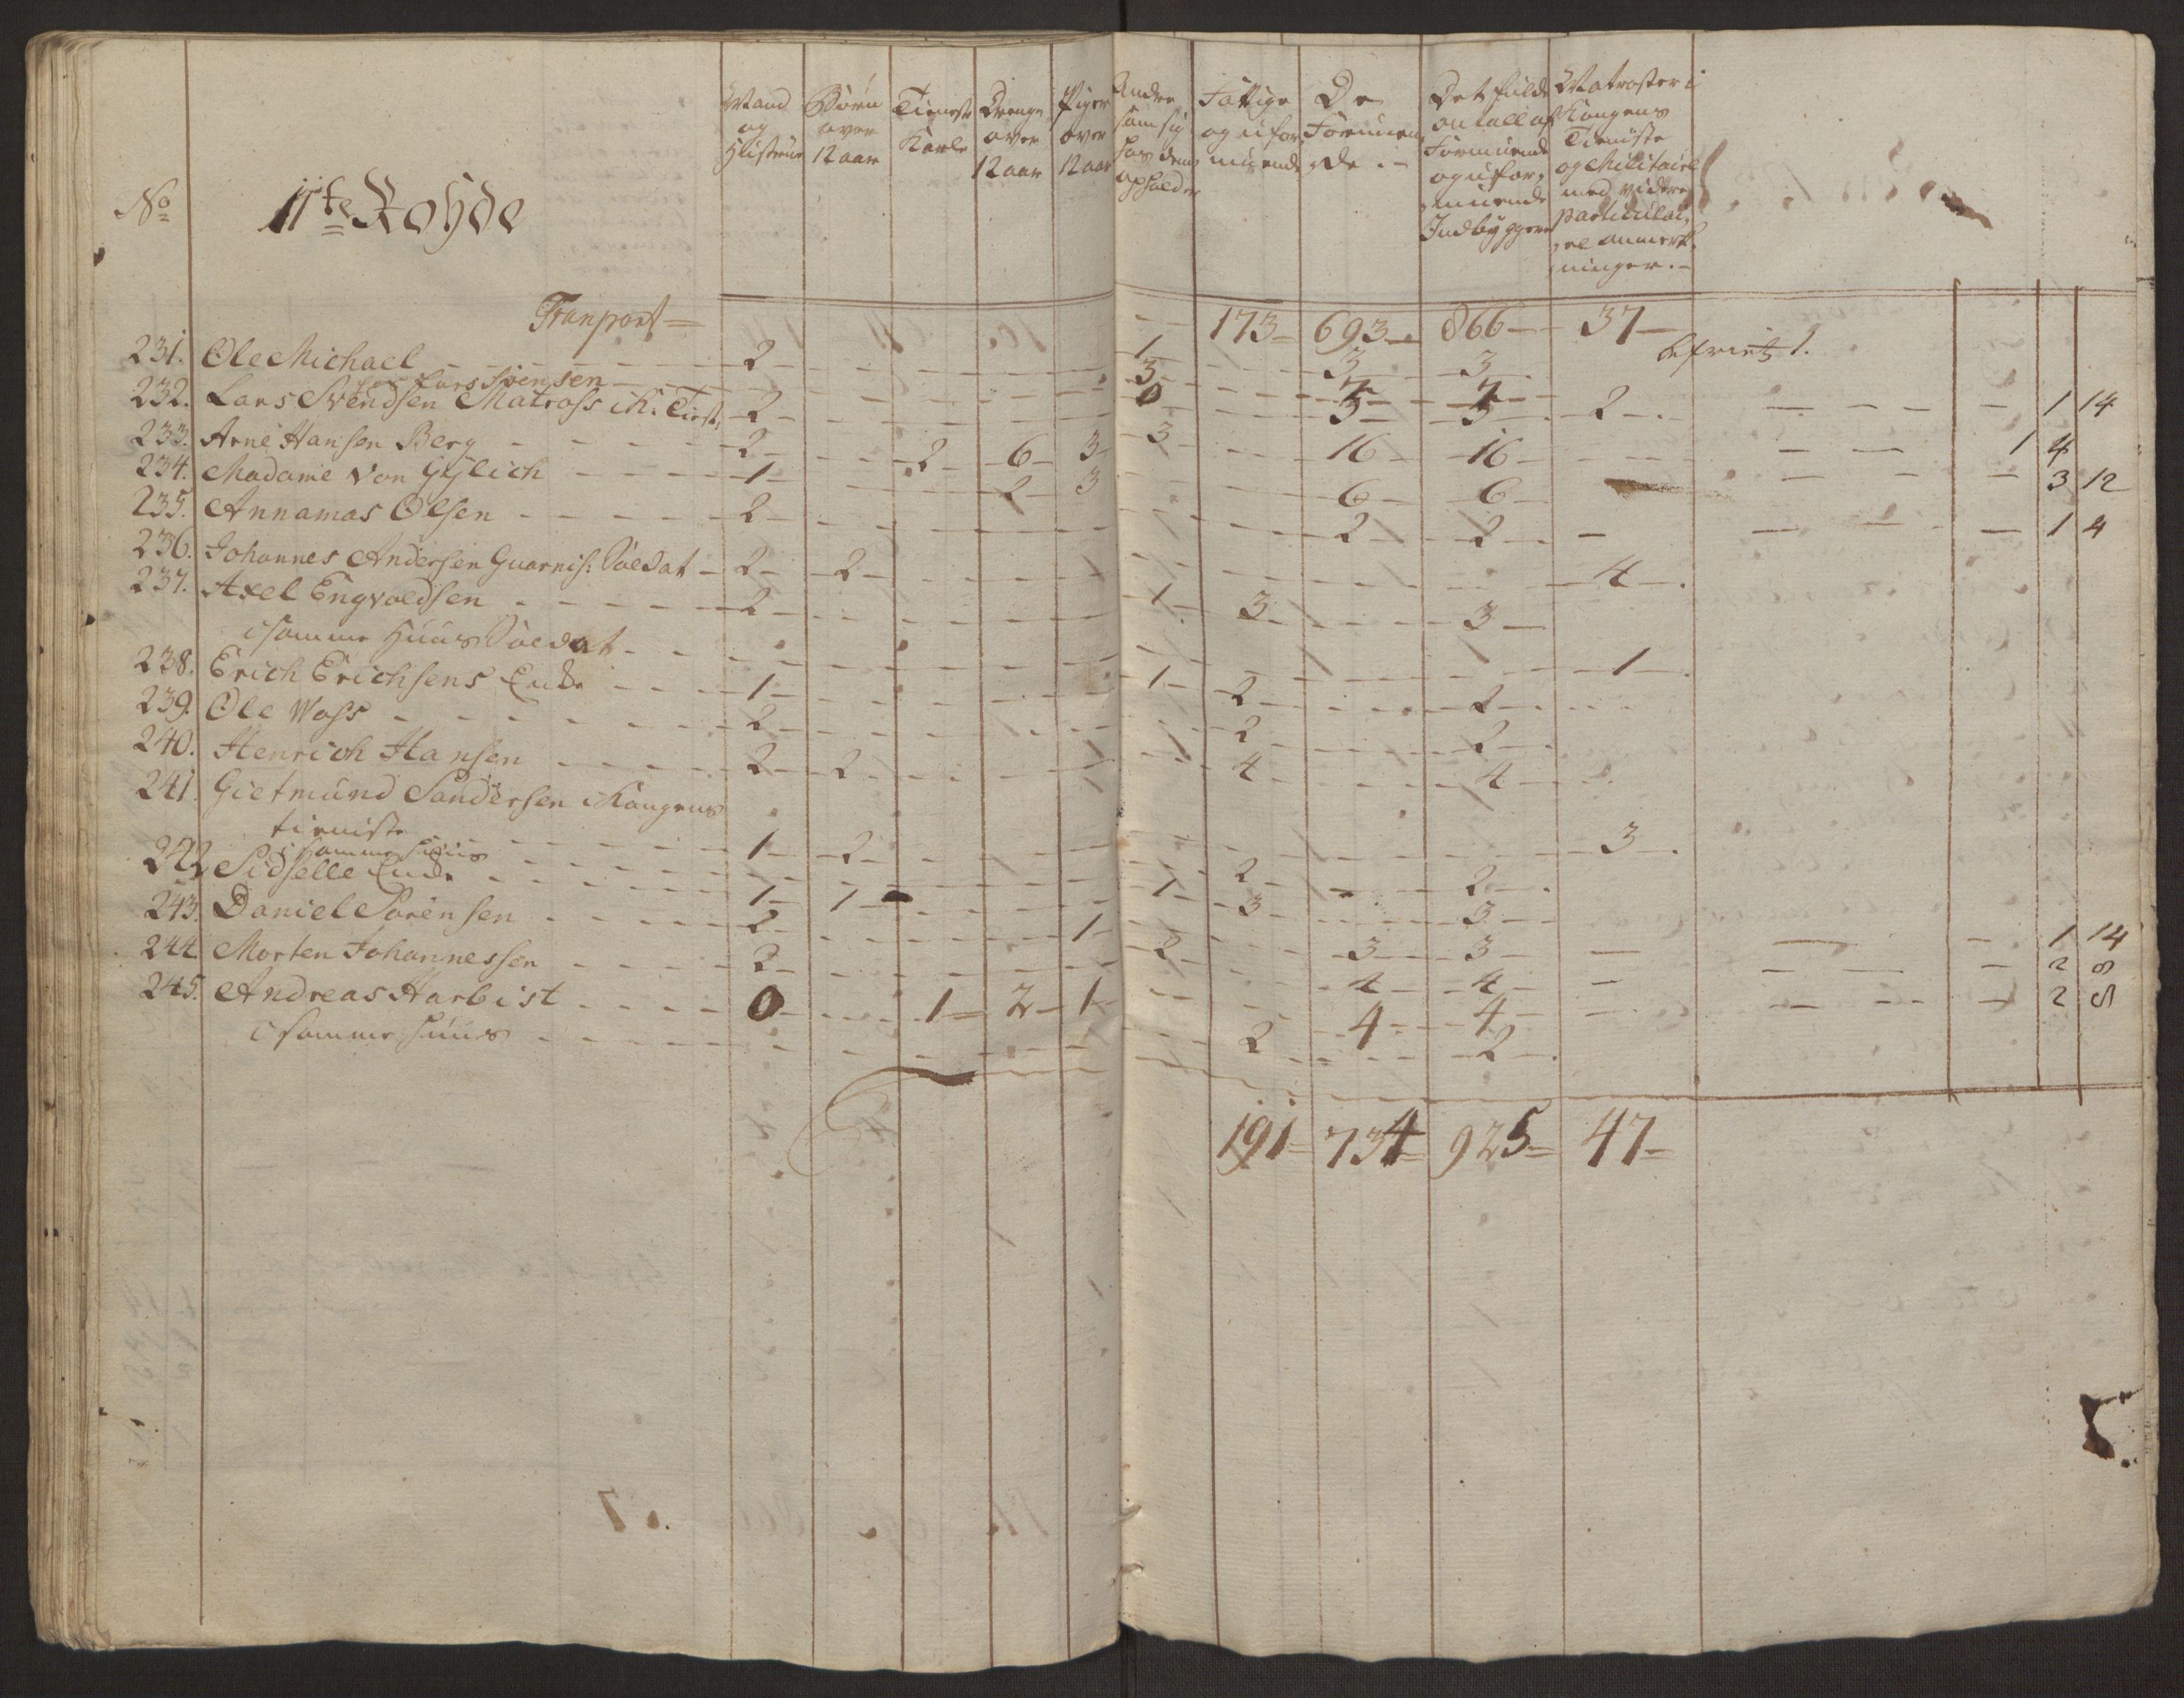 No
11te Rohde
Mand og Hustrue
Børn over 12 aar
Tieneste Karle
Drenge over 12 aar
Piger over 12 aar
Andre som sig hos dem opholder
Fattige og uformuende
De Formuende :-
Det fulde antall af Formuende og uformuende Indbyggere
Matroser i Kongens Tieniste og Militaire med videre particulaire anmerkninger.-
Tranport = 173 693 866 37
befriet 1.
231. Ole Michael 2 1 3 3
hos Lars Svensen 3
232. Lars Svendsen Matross i K: Tienst: 2 0 2 1 14
233. Arne Hansen Berg 2 2 6 3 3 16 16 1 4
234. Madame von Gÿlich 1 2 3 6 6 3 12
235. Annamas Olsen 2 2 2 1 4
236. Johannes Andersen Guarnis: Soldat 2 2 4
237. Axel Engvoldsen 2 1 3 3
i samme Huus Soldat 1
238. Erich Erichsens Enke 1 1 2 2
239. Ole Voss 2 2 2
240. Henrich Hansen 2 2 4 4
241. Gietmund Sandersen i Kongens
tieniste 1 2 3
i samme Huus
242 Sidselle Enke 1 1 2 2
243. Daniel Sørensen 2 1 3 3
244 Morten Johannessen 2 1 2 3 3 1 14
245. Andreas Harbist 0 1 2 1 4 4 2 8
i samme Huus 2 2
191 734 925 47